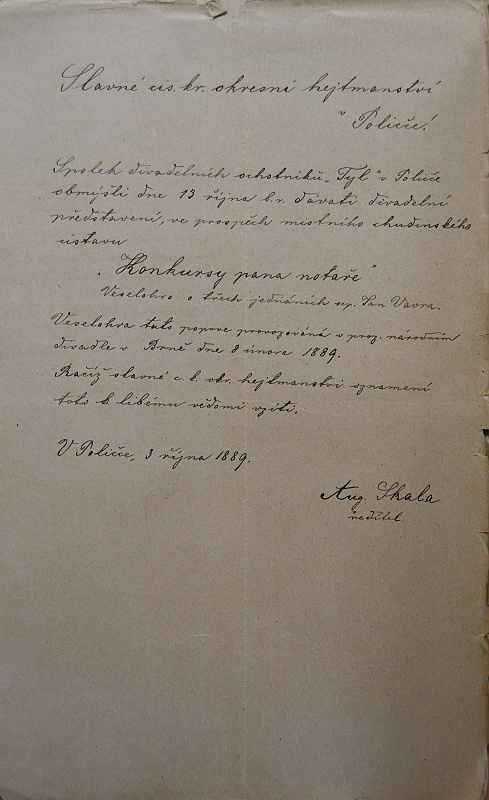 Slavné cis. kr. okresní hejtmanství
v Poličce!
Spolek divadelních ochotníků „Tyl" v Poličce
obmýšlí dne 13 října b.r. dávati divadelní
představení, ve prospěch místního chudinského
ústavu
„Konkursy pana notáře"
Veselohra o třech jednáních sep. Jan Vávra.
Veselohra tato poprve provozována v proz. národním
divadle v Brně dne 8 února 1889.
Račiž slavné c. k. okr. hejtmanství oznámení
toto k libému vědomí vzíti.
V Poličce, 3 října 1889.
Aug. Skala
ředitel.